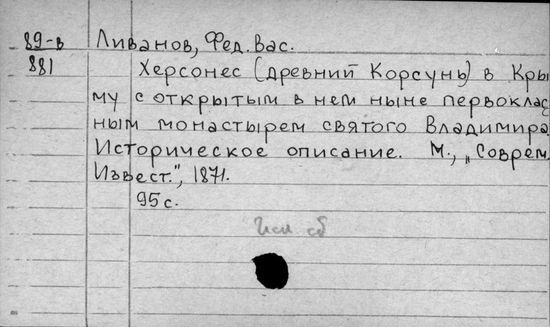 89-в Ливанов, Фед. Вас.
881 Херсонес (древний Корсунь) в Кры
му с открытым в нем ныне первоклас
ным монастырем святого Владимира
Историческое описание. М., „Соврем.
Извест.", 1871.
95 с.